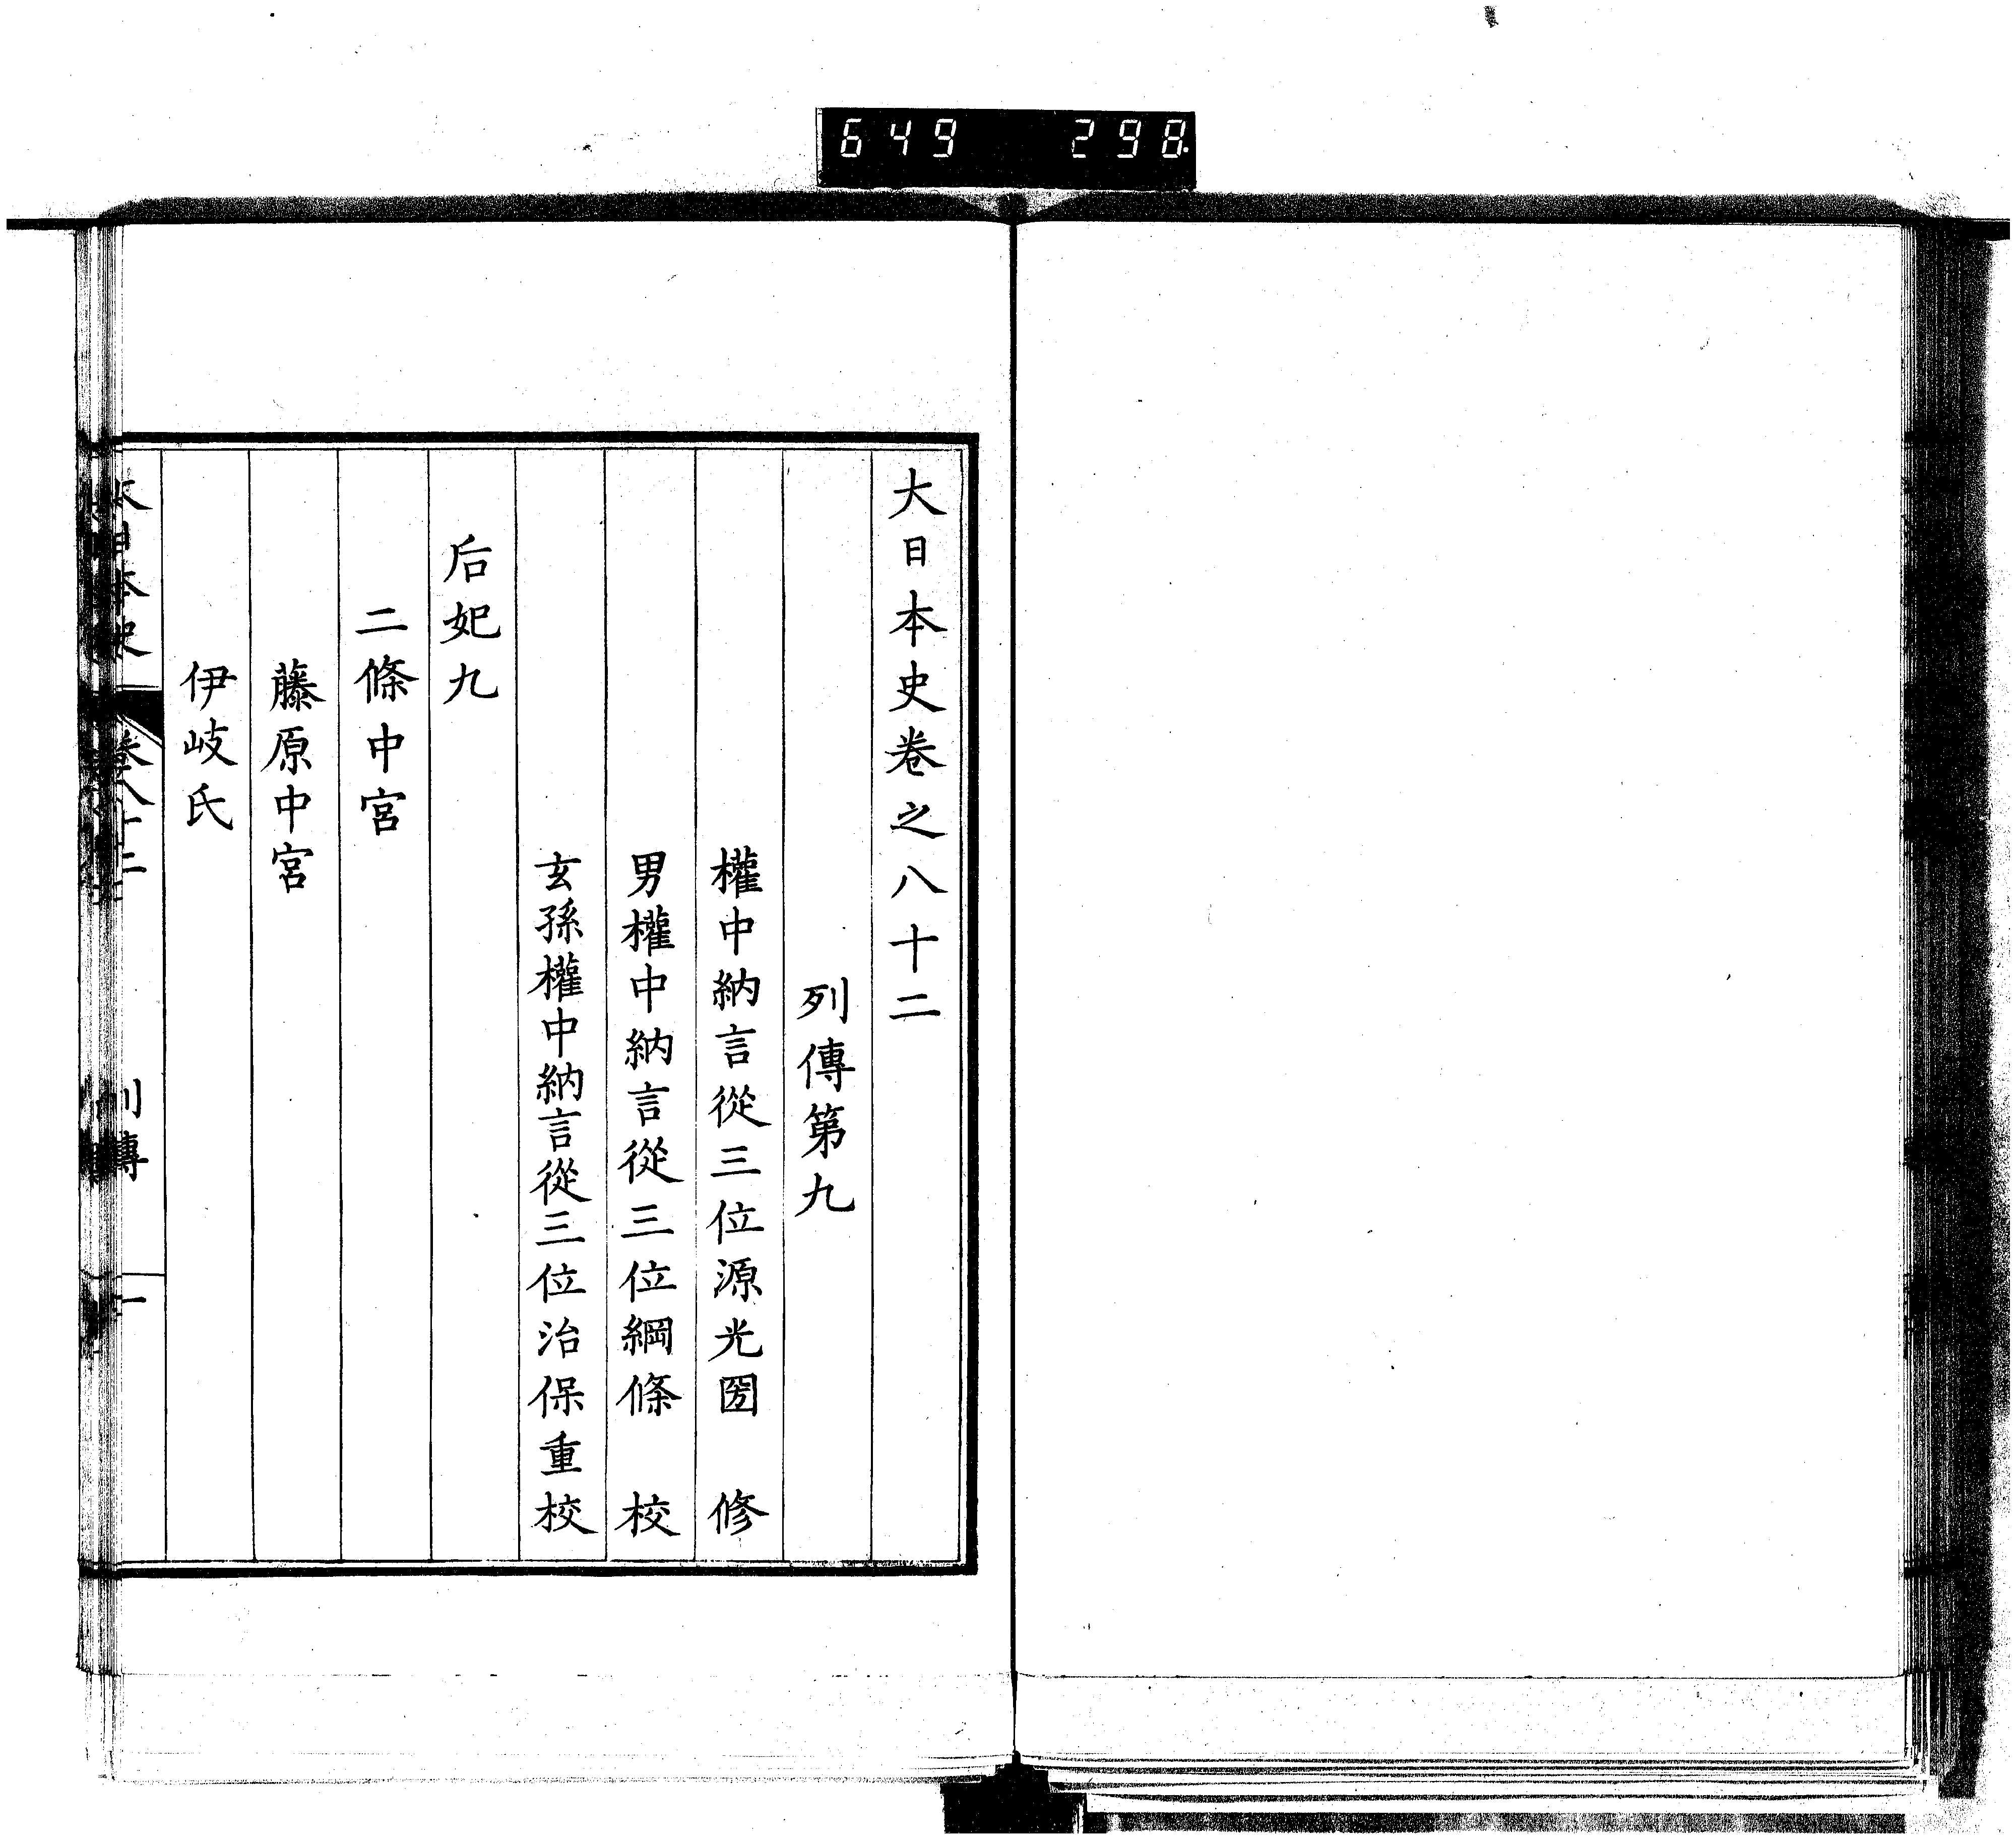 649 298
大日本史卷之八十二
列傳第九
權中納言從三位源光圀 修
男權中納言從三位綱條 校
玄孫權中納言從三位治保重校
后妃九
二條中宮
藤原中宮
伊岐氏
大日本史 卷八十二 列傳 一